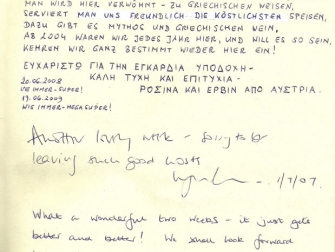 MAN WIRD HIER VERWÖHNT - ZU GRIECHISCHEN WEISEN,
SERVIERT MAN UNS FREUNDLICH DIE KÖSTLICHSTEN SPEISEN,
DAZU GIBT ES MYTHOS UND GRIECHISCHEN WEIN,
AB 2004 WAREN WIR JEDES JAHR HIER, UND WILL ES SO SEIN,
KEHREN WIR GANZ BESTIMMT WIEDER HIER EIN!
ΕΥΧΑΡΙΣΤΩ ΓΙΑ ΤΗΝ ΕΓΚΑΡΔΙΑ ΥΠΟΔΟΧΗ-
ΚΑΛΗ ΤΥΧΗ ΚΑΙ ΕΠΙΤΥΧΙΑ-
20.06.2008
WIE IMMER-SUPER!
ΡΟΣΙΝΑ ΚΑΙ ΕΡΒΙΝ ΑΠΟ ΑΥΣΤΡΙΑ.
19.06.2009
WIE IMMER-MEGASUPER!
Another lovely week - sorry to be
leaving such good hosts
1/7/07.
What a wonderful two weeks - it just gets
better and better! We shall look forward